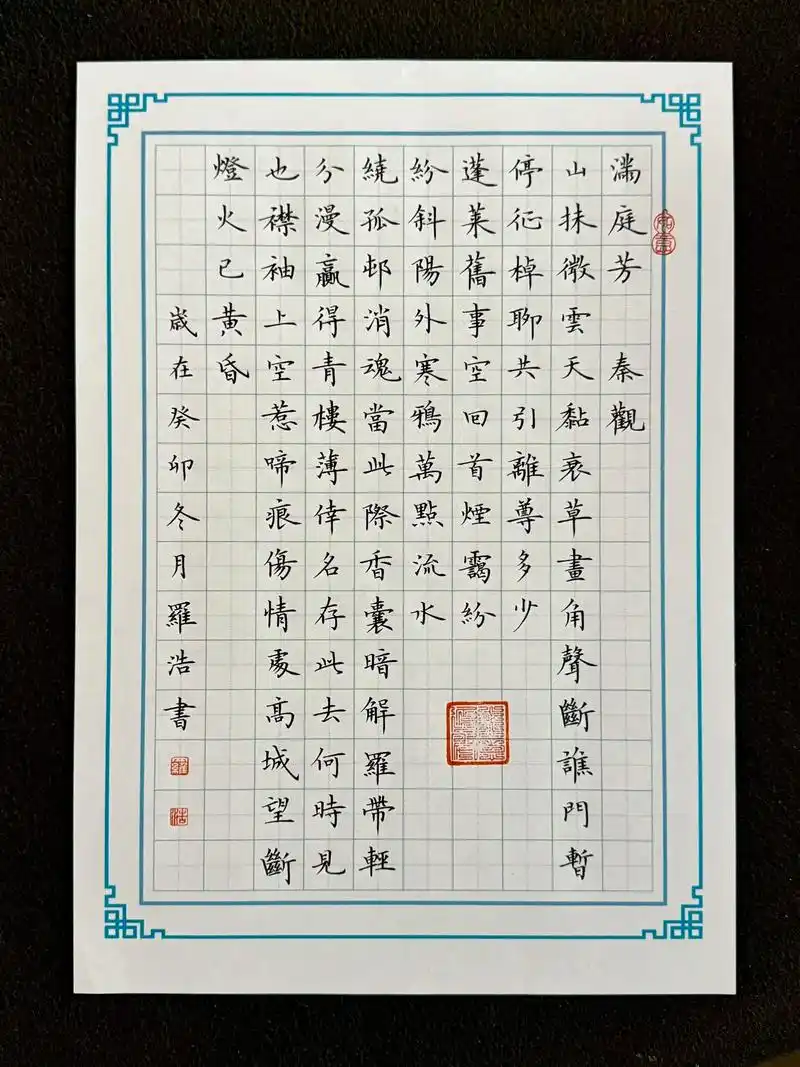 滿庭芳　秦觀
山抹微雲天黏衰草畫角聲斷譙門暫
停征棹聊共引離尊多少
蓬萊舊事空回首煙靄紛
紛斜陽外寒鴉萬點流水
繞孤邨消魂當此際香囊暗解羅帶輕
分漫贏得青樓薄倖名存此去何時見
也襟袖上空惹啼痕傷情處高城望斷
燈火已黃昏
歲在癸卯冬月羅浩書